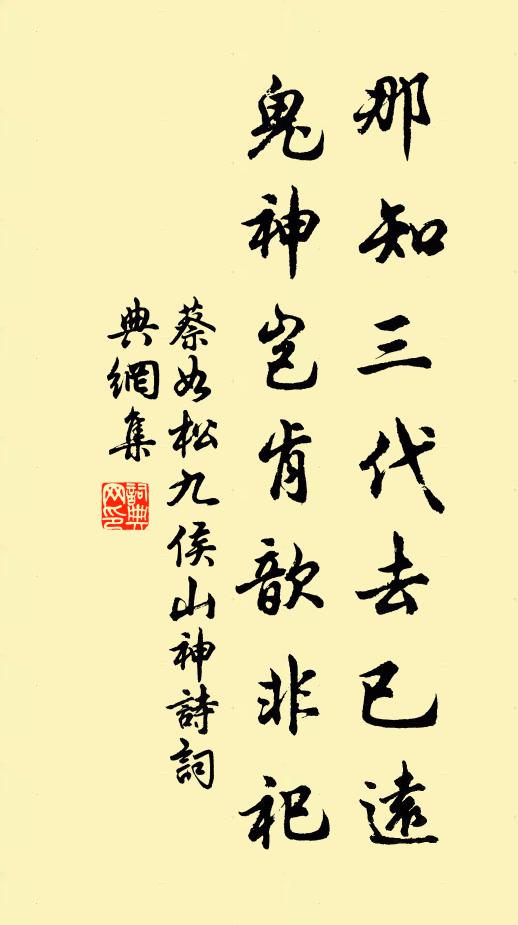 那知三代去已遠
鬼神豈肯歆非祀
蔡如松九侯山神詩詞
典網集
詞典
网印